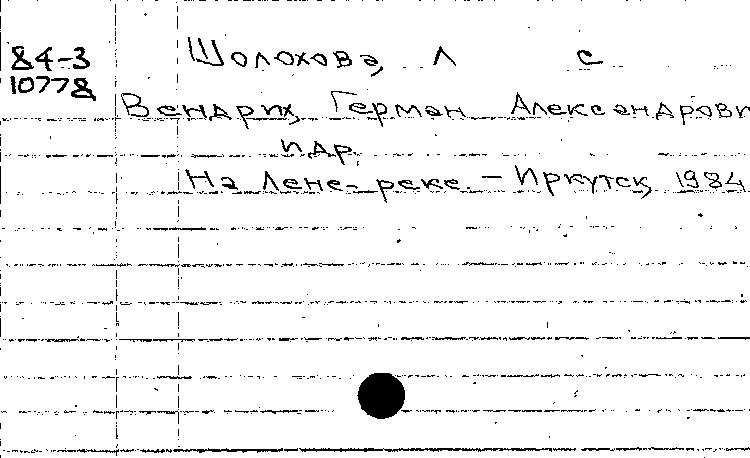 84-3 Шолохова, Л С
10778
Вендрих, Герман Александрови
и др.
На Лене-реке. - Иркутск, 1984